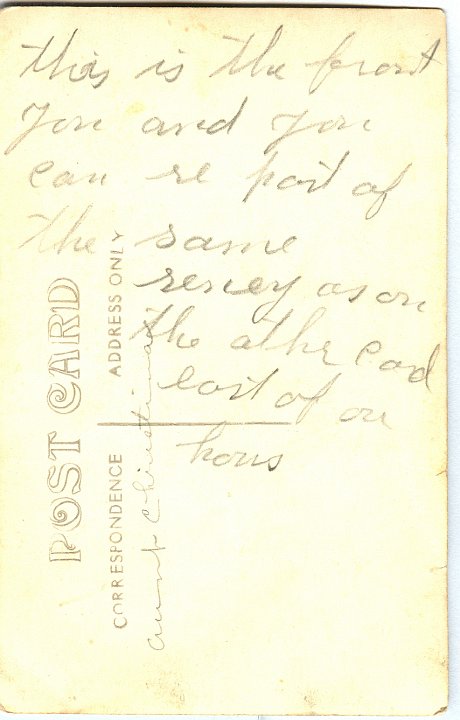 this is the front
you and you
can se part of
the same
seney as on
the othe cad
east of our
hous
POST CARD
ADDRESS ONLY
CORRESPONDENCE
aunt Christina